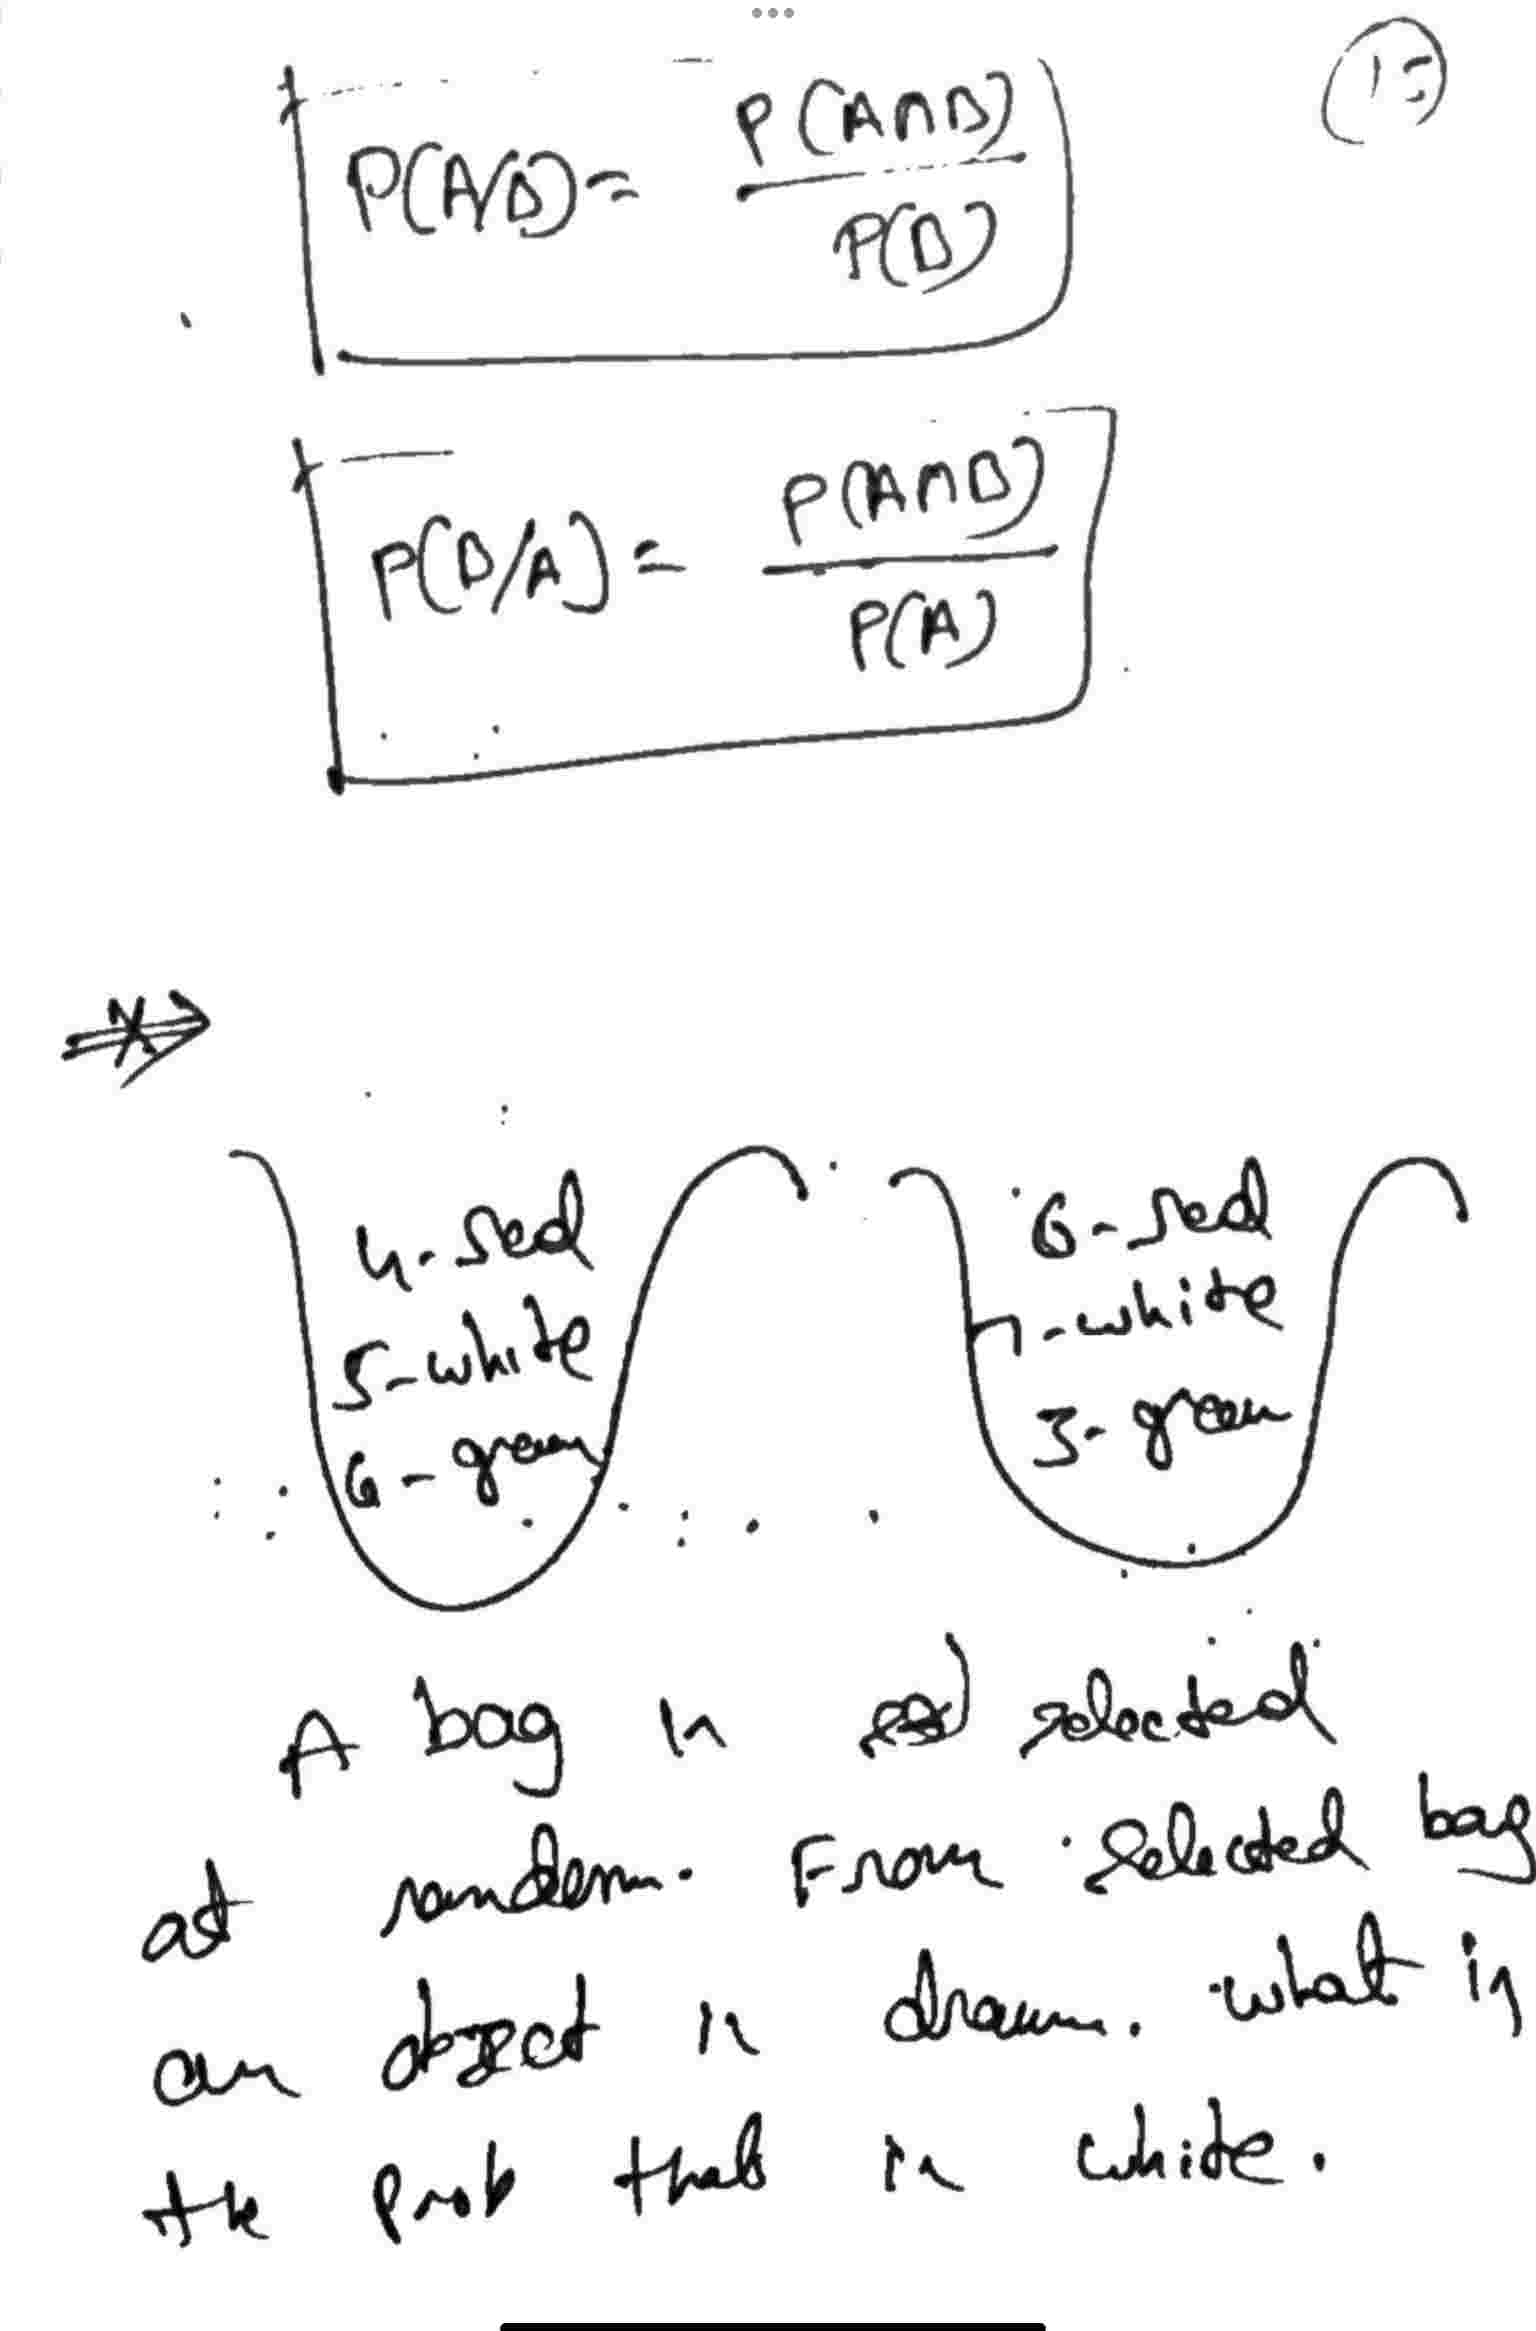 P(A/B) = P(A∩B)
P(B)
P(B/A) = P(A∩B)
P(A)
4-red
5-white
6-green
6-red
7-white
3-green
A bag is selected
at random. From selected bag
an object is drawn. what is
the prob that is white.